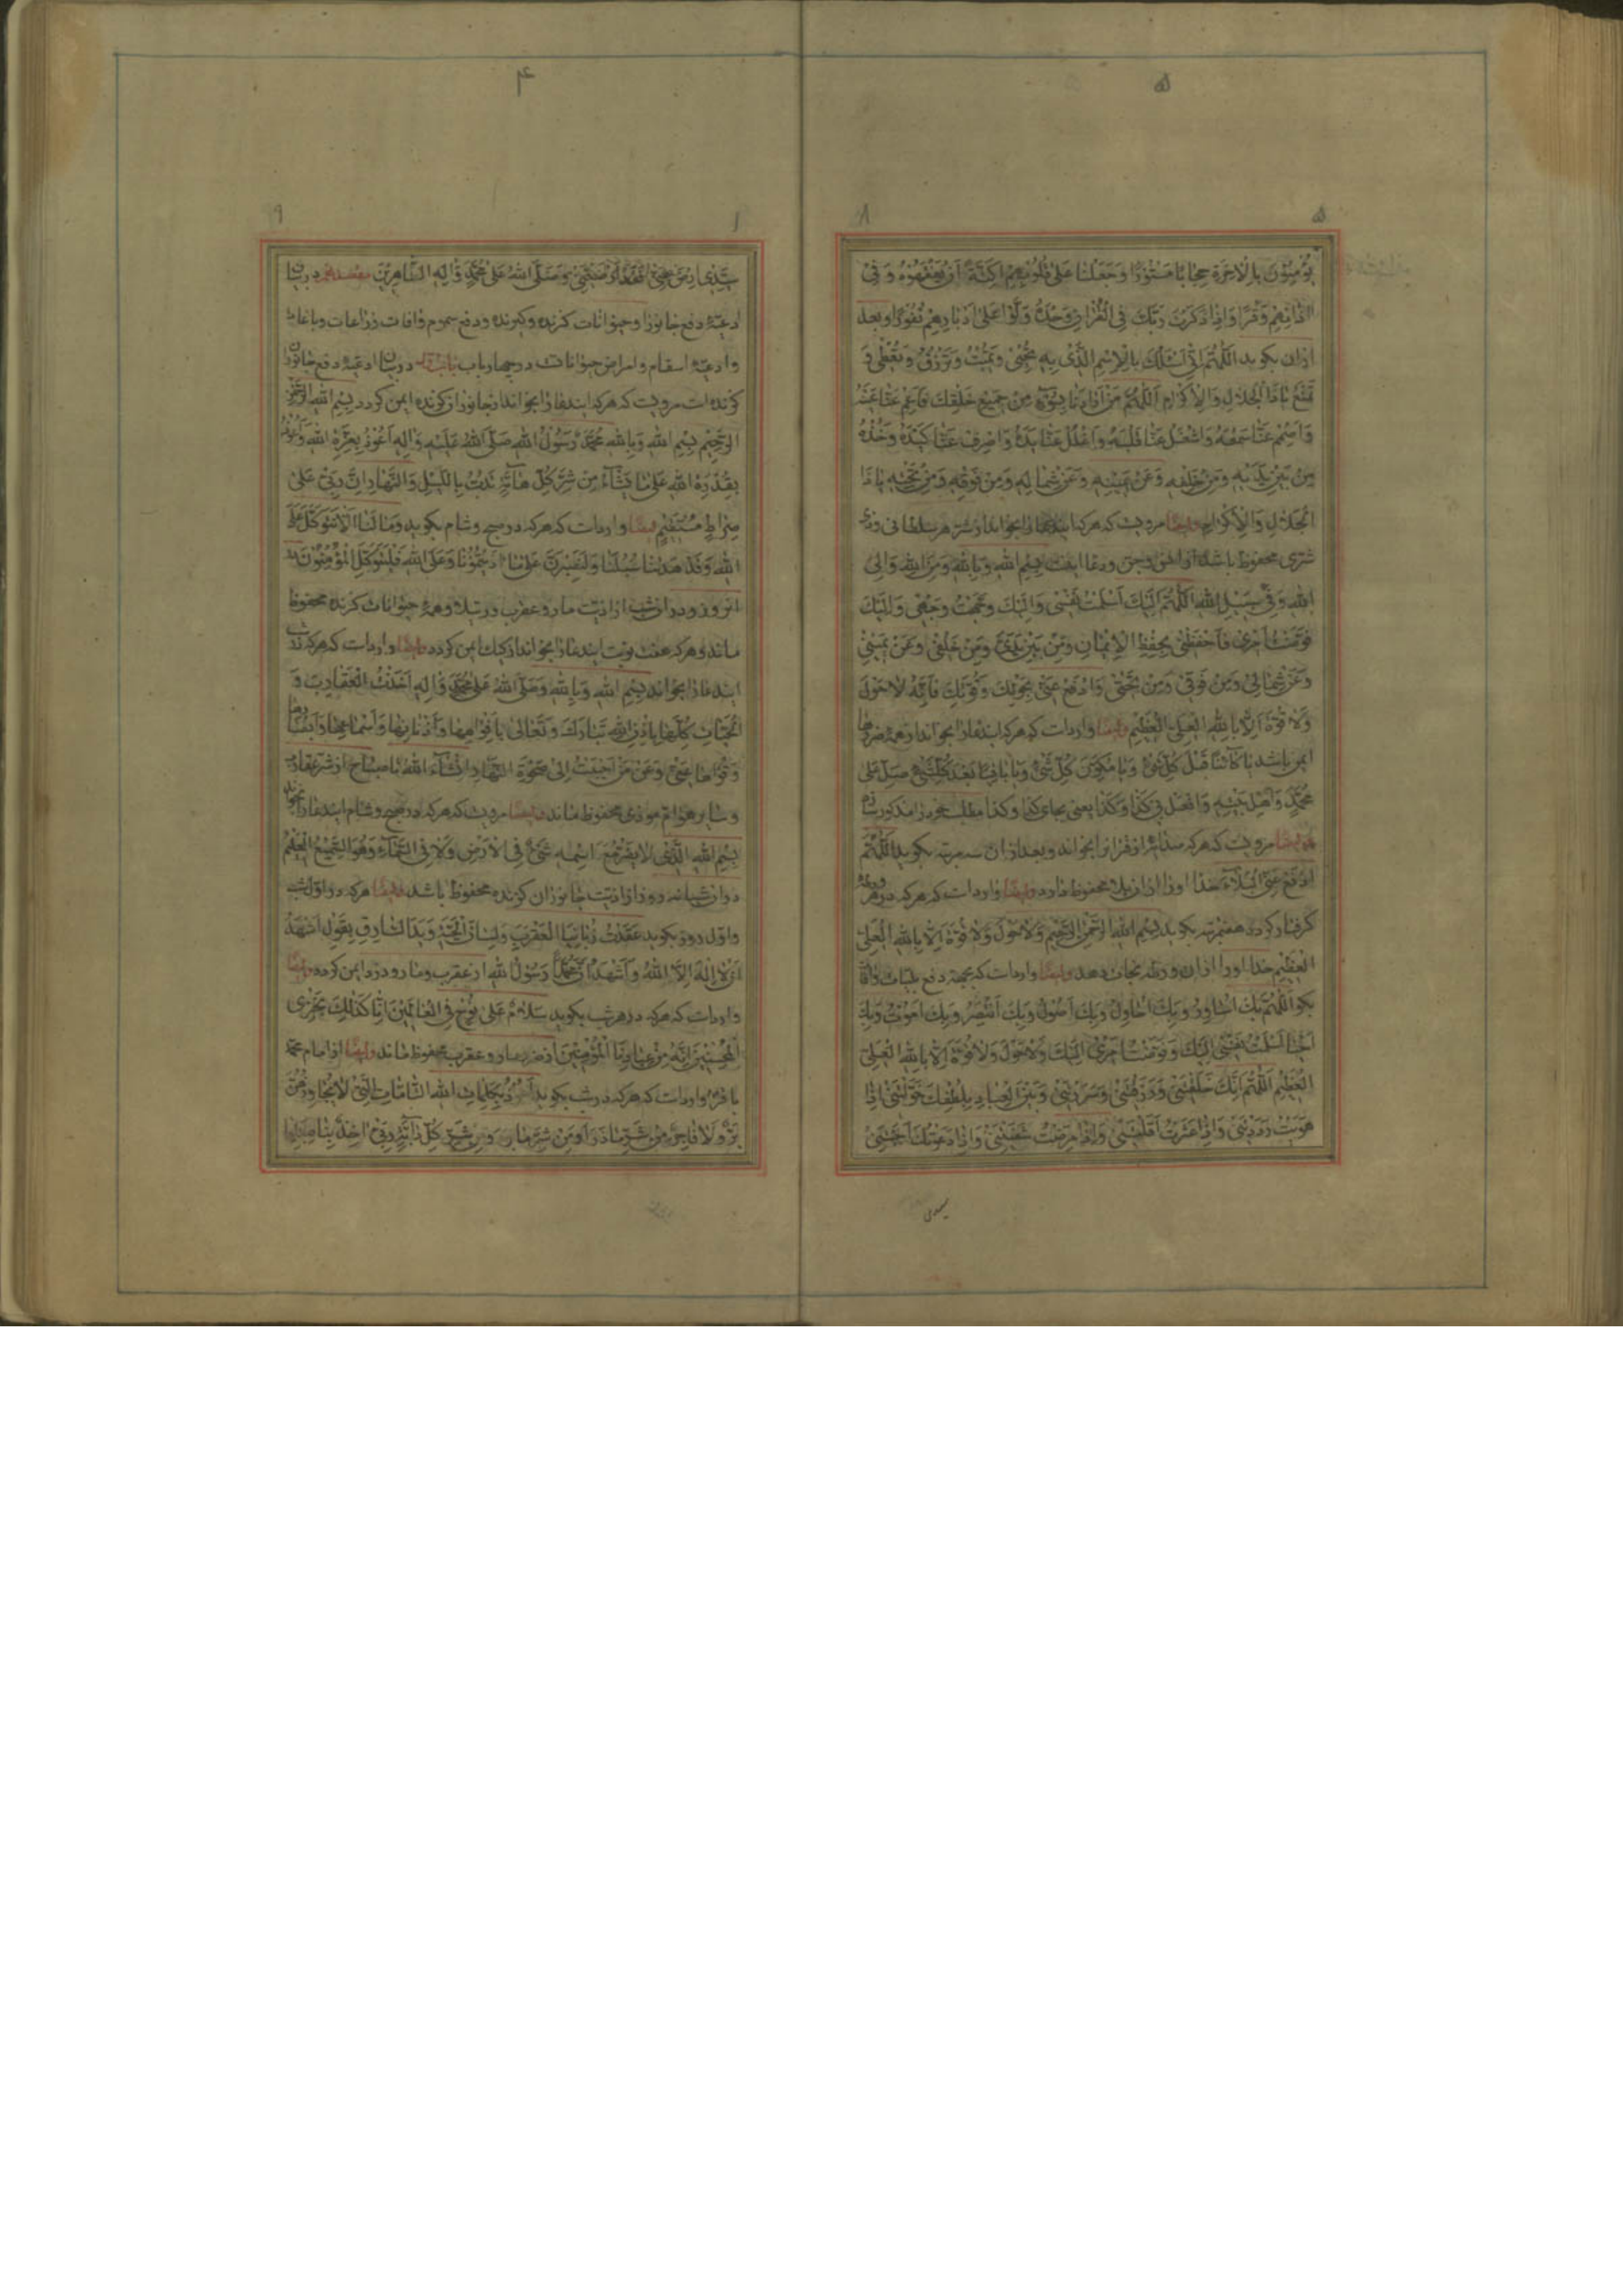 ۵
۵
۸
يُؤْمِنُونَ بِالْاخِرَةِ حِجابًا مَسْتُورًا وَجَعَلْنا عَلى قُلُوبِهِمْ اَكِنَّةً اَنْ يَفْقَهُوهُ وَفى
اذانِهِمْ وَقْرًا وَاِذا ذَكَرْتَ رَبَّكَ فِى الْقُرْانِ وَحْدَهُ وَلَّوْا عَلى اَدْبارِهِمْ نُفُورًا وبعد
ازان بكويد اَللّهُمَّ اِنّى اَسْئَلُكَ بِالْاِسْمِ الَّذى بِهِ تُحْيى وَتُميتُ وَتَرْزُقُ وَتُعْطى وَ
تَمْنَعُ يا ذَا الْجَلالِ وَالْاِكْرامِ اَللّهُمَّ مَنْ اَرادَنا بِسُوءٍ مِنْ جَميعِ خَلْقِكَ فَاَعْمِ عَنّا عَيْنَهُ
وَاَصْمِمْ عَنّا سَمْعَهُ وَاشْغَلْ عَنّا قَلْبَهُ وَاغْلُلْ عَنّا يَدَهُ وَاصْرِفْ عَنّا كَيْدَهُ وَخُذْهُ
مِنْ بَيْنِ يَدَيْهِ وَمِنْ خَلْفِهِ وَعَنْ يَمينِهِ وَعَنْ شِمالِهِ وَمِنْ فَوْقِهِ وَمِنْ تَحْتِهِ يا ذَا
الْجَلالِ وَالْاِكْرامِ وايضًا مرويست كه هركه ايندعا را بخواند از شر هر سلطانى وذى
شرى محفوظ باشد از انس وجن ودعا اينست بِسْمِ اللهِ وَبِاللهِ وَمِنَ اللهِ وَاِلَى
اللهِ وَفى سَبيلِ اللهِ اَللّهُمَّ اِلَيْكَ اَسْلَمْتُ نَفْسى وَاِلَيْكَ وَجَّهْتُ وَجْهى وَاِلَيْكَ
فَوَّضْتُ اَمْرى فَاحْفَظْنى بِحِفْظِ الْاِيْمانِ وَمِنْ بَيْنِ يَدَىَّ وَمِنْ خَلْفى وَعَنْ يَمينى
وَعَنْ شِمالى وَمِنْ فَوْقى وَمِنْ تَحْتى وَادْفَعْ عَنّى بِحَوْلِكَ وَقُوَّتِكَ فَاِنَّهُ لا حَوْلَ
وَلا قُوَّةَ اِلّا بِاللهِ الْعَلِىِّ الْعَظيمِ وايضًا واردات كه هركه ايندعا را بخواند از همه ضررها
ايمن باشد يا كائِنًا قَبْلَ كُلِّ شَىْءٍ وَيا مُكَوِّنَ كُلِّ شَىْءٍ وَيا باقِيًا بَعْدَ كُلِّ شَىْءٍ صَلِّ عَلى
مُحَمَّدٍ وَاَهْلِ بَيْتِهِ وَافْعَلْ بى كَذا وَكَذا يعنى بجاى كذا وكذا مطلب خود را مذكور سازد
وايضًا مرويست كه هركه صد ايه از قران بخواند وبعد ازان سه مرتبه بكويد اَللّهُمَّ
ادْفَعْ عَنِّى الْبَلاءَ خدا اورا ازان بلا محفوظ دارد وايضًا واردات كه هركه در هر ورطه
كرفتار كردد هفتمرتبه بكويد بِسْمِ اللهِ الرَّحْمنِ الرَّحيمِ وَلا حَوْلَ وَلا قُوَّةَ اِلّا بِاللهِ الْعَلِىِّ
الْعَظيمِ خدا اورا ازان ورطه نجات دهد وايضًا واردات كه بجهة دفع بليات وافات
بكو اَللّهُمَّ بِكَ اُساوِرُ وَبِكَ اُحاوِلُ وَبِكَ اَصُولُ وَبِكَ اَنْتَصِرُ وَبِكَ اَمُوتُ وَبِكَ
اَحْيا اَسْلَمْتُ نَفْسى اِلَيْكَ وَفَوَّضْتُ اَمْرى اِلَيْكَ وَلا حَوْلَ وَلا قُوَّةَ اِلّا بِاللهِ الْعَلِىِّ
الْعَظيمِ اَللّهُمَّ اِنَّكَ خَلَقْتَنى وَرَزَقْتَنى وَسَرَرْتَنى وَبَيْنَ الْعِبادِ بِلُطْفِكَ خَوَّلْتَنى اِذا
هَوَيْتُ رَدَدْتَنى وَاِذا عَثَرْتُ اَقَلْتَنى وَاِذا مَرِضْتُ شَفَيْتَنى وَاِذا دَعَوْتُكَ اَجَبْتَنى
سيدى
۴
۱
۹
سَيِّدى ارْضَ عَنّى فَقَدْ اَرْضَيْتَنى وَصَلَّى اللهُ عَلى مُحَمَّدٍ وَالِهِ الطّاهِرينَ در بيان
ادعيۀ دفع جانوران وحيوانات كزنده وكيرنده ودفع سموم وافات وزراعات وباغات
وادعيۀ اسقام وامراض حيوانات در چهار باب در بيان ادعيۀ دفع جانوران
كزنده است مرويست كه هركه ايندعا را بخواند از جانوران كزنده ايمن كردد بِسْمِ اللهِ الرَّحْمنِ
الرَّحيمِ بِسْمِ اللهِ وَبِاللهِ مُحَمَّدٌ رَسُولُ اللهِ صَلَّى اللهُ عَلَيْهِ وَالِهِ اَعُوذُ بِعِزَّةِ اللهِ وَاَعُوذُ
بِقُدْرَةِ اللهِ عَلى ما يَشاءُ مِنْ شَرِّ كُلِّ هامَّةٍ تَدِبُّ بِاللَّيْلِ وَالنَّهارِ اِنَّ رَبّى عَلى
صِراطٍ مُسْتَقيمٍ ايضًا واردات كه هركه در صبح وشام بكويد وَما لَنا اَلّا نَتَوَكَّلَ عَلَى
اللهِ وَقَدْ هَدينا سُبُلَنا وَلَنَصْبِرَنَّ عَلى ما اذَيْتُمُونا وَعَلَى اللهِ فَلْيَتَوَكَّلِ الْمُؤْمِنُونَ در
انروز ودران شب از اذيت مار وعقرب ورتيلا وهمۀ حيوانات كزنده محفوظ
ماند وهركه هفت نوبت ايندعا را بخواند از كيك ايمن كردد وايضًا واردات كه هركه در شب
ايندعا را بخواند بِسْمِ اللهِ وَبِاللهِ وَصَلَّى اللهُ عَلى مُحَمَّدٍ وَالِهِ اَخَذْتُ الْعَقارِبَ وَ
الْحَيّاتِ كُلَّها بِاِذْنِ اللهِ تَبارَكَ وَتَعالى بِاَفْواهِها وَاَذْنابِها وَاَسْماعِها وَاَبْصارِها
وَقُواها عَنّى وَعَنْ مَنْ اَحْبَبْتُ اِلى ضَحْوَةِ النَّهارِ اِنْ شاءَ اللهُ تا صباح از شر عقارب
وساير هوام موذى محفوظ ماند وايضًا مرويست كه هركه در صبح وشام ايندعا را بخواند
بِسْمِ اللهِ الَّذى لا يَضُرُّ مَعَ اسْمِهِ شَىْءٌ فِى الْاَرْضِ وَلا فِى السَّماءِ وَهُوَ السَّميعُ الْعَليمُ
دران شبانه روز از اذيت جانوران كزنده محفوظ باشد وايضًا هركه در اول شب
واول روز بكويد عَقَدْتُ زُبانِىَ الْعَقْرَبِ وَلِسانَ الْحَيَّةِ وَيَدَ السّارِقِ بِقَوْلِ اَشْهَدُ
اَنْ لا اِلهَ اِلَّا اللهُ وَاَشْهَدُ اَنَّ مُحَمَّدًا رَسُولُ اللهِ از عقرب ومار ودزد ايمن كردد وايضًا
واردات كه هركه در هر شب بكويد سَلامٌ عَلى نُوحٍ فِى الْعالَمينَ اِنّا كَذلِكَ نَجْزِى
الْمُحْسِنينَ اِنَّهُ مِنْ عِبادِنَا الْمُؤْمِنينَ از ضرر مار وعقرب محفوظ ماند وايضًا از امام محمد
باقر واردات كه هركه در شب بكويد اَعُوذُ بِكَلِماتِ اللهِ التّامّاتِ الَّتى لا يُجاوِزُهُنَّ
بَرٌّ وَلا فاجِرٌ مِنْ شَرِّ ما ذَرَاَ وَمِنْ شَرِّ ما بَرَاَ وَمِنْ شَرِّ كُلِّ دابَّةٍ رَبّى اخِذٌ بِناصِيَتِها